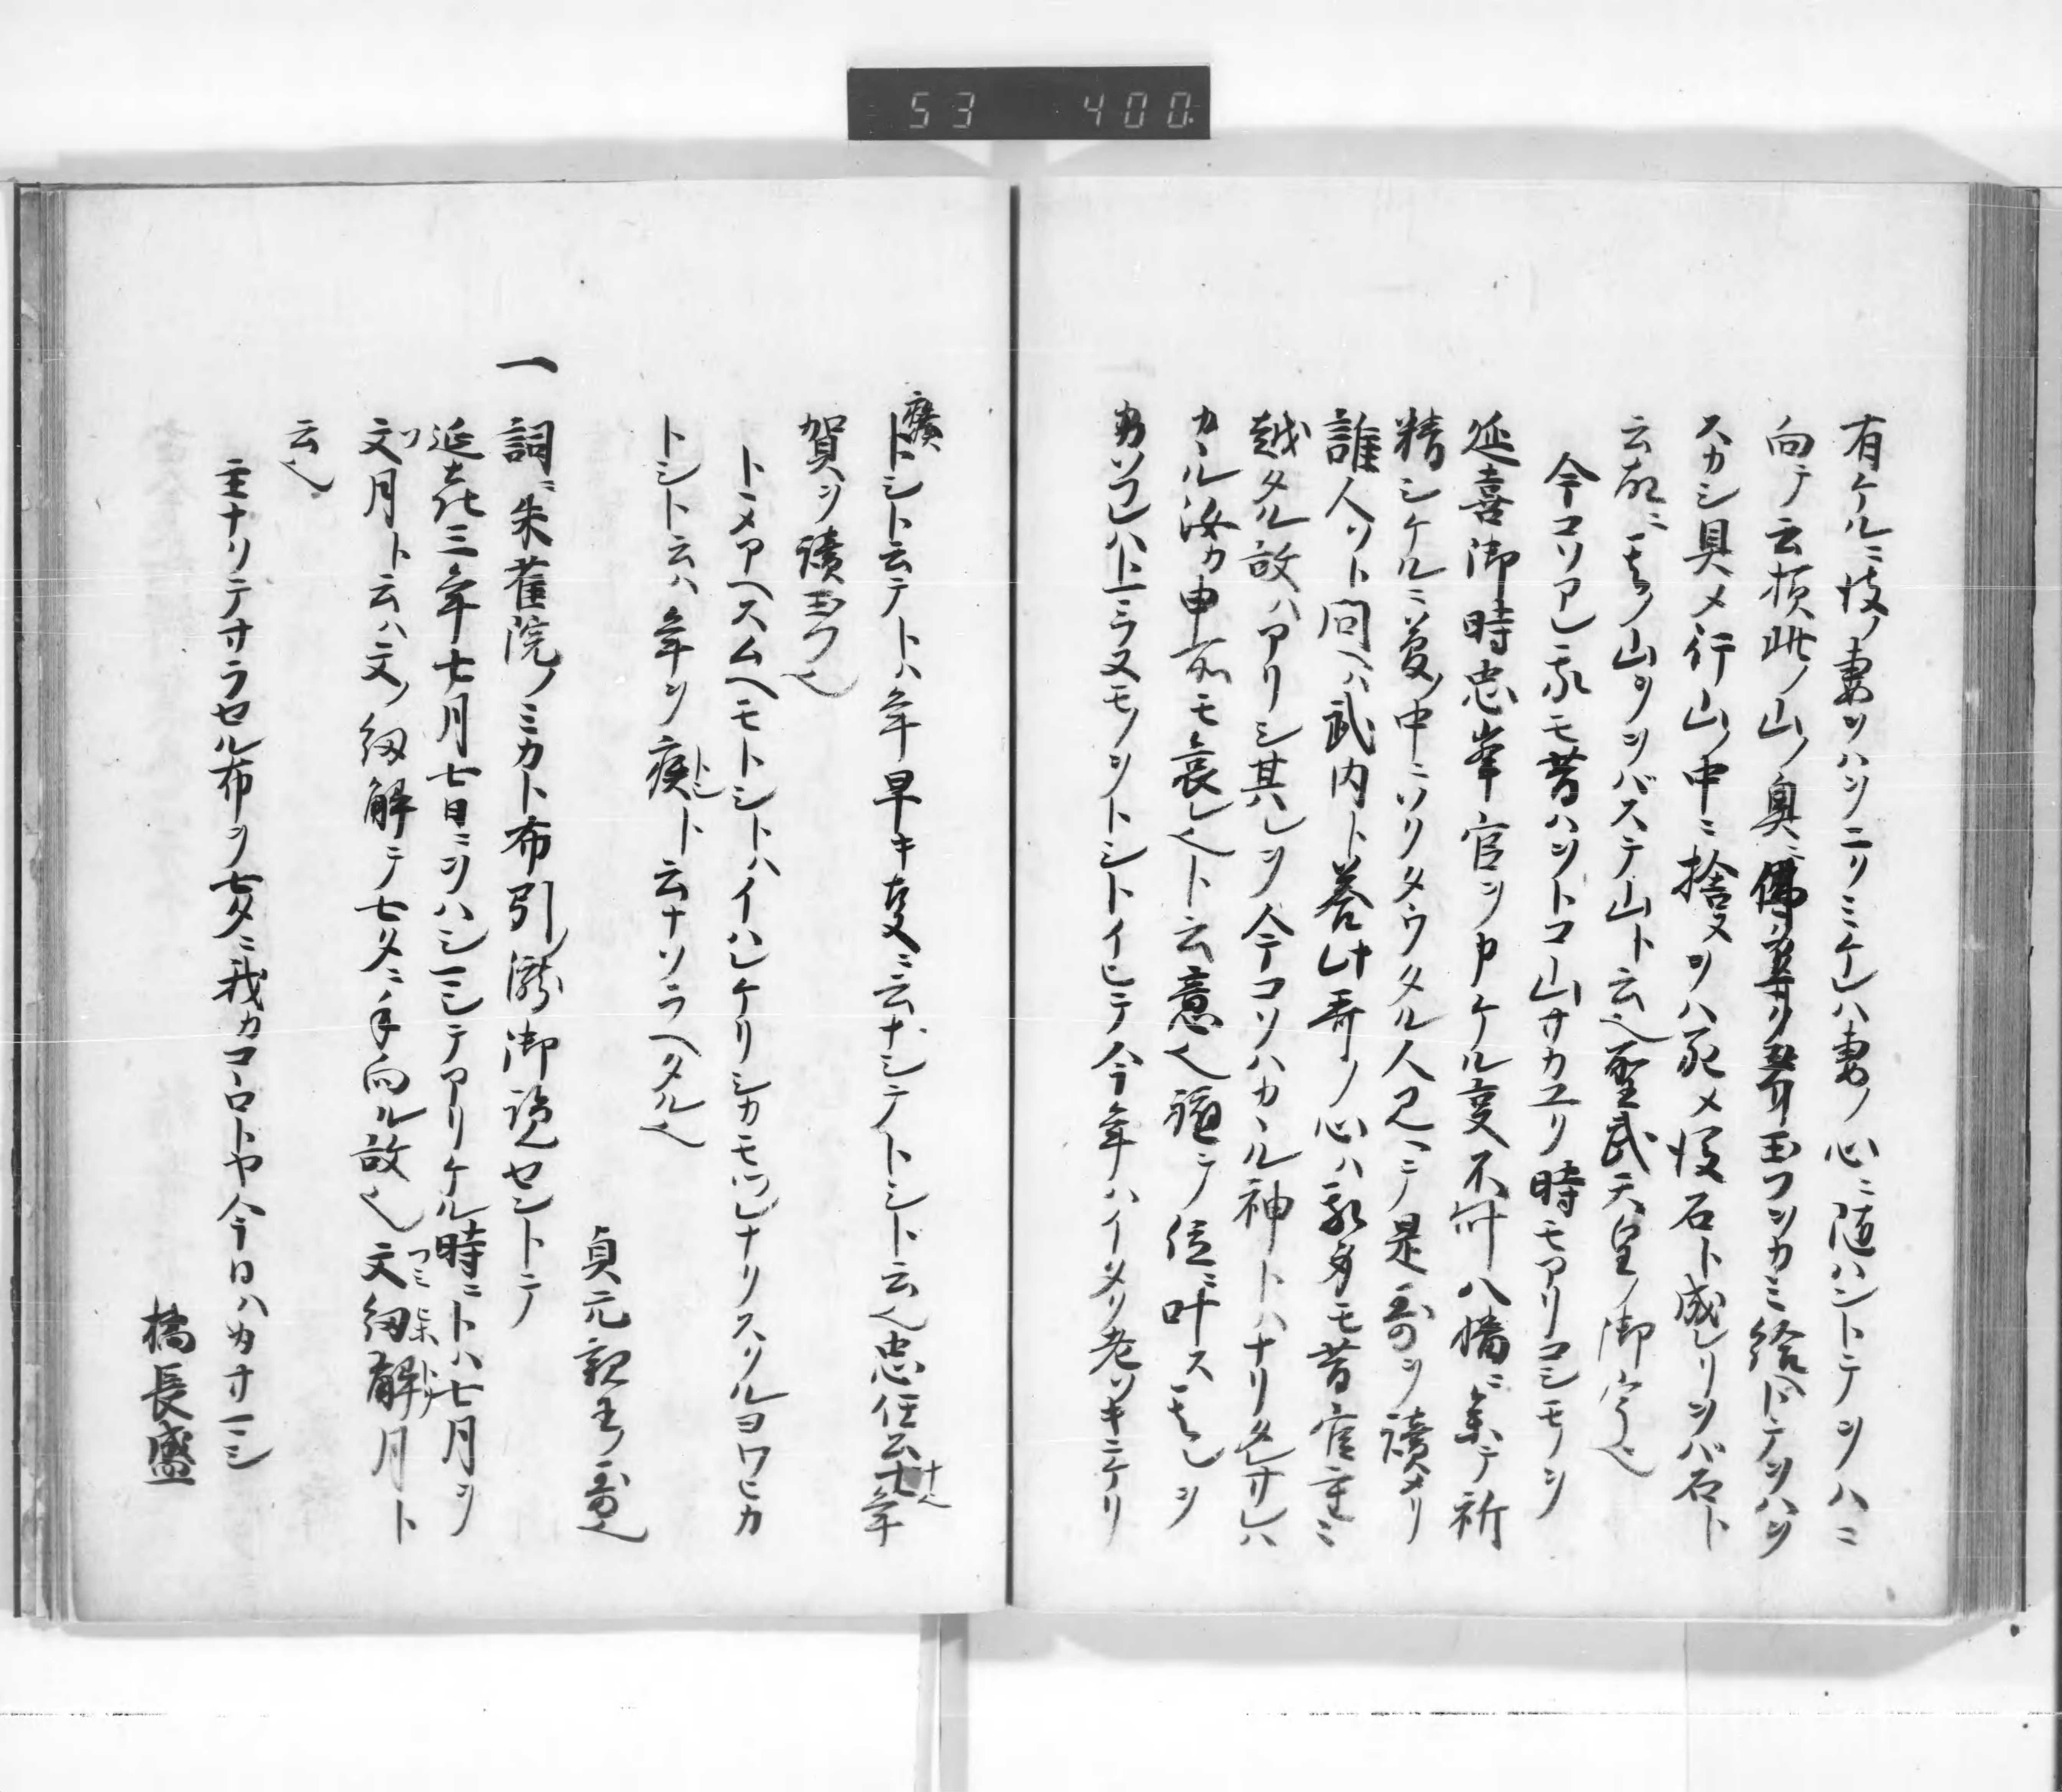 53 400
有ケルニ彼ノ妻ヲハヲニクミケレハ妻ノ心ニ随ハントテヲハニ
向テ云樣此ノ山ノ奥ニ佛ノ尊キ玉フヲカミ給ヘトテヲハヲ
スカシ具メ行山ノ中ニ捨ヌヲハ死メ後石ト成レリヲバ石ト
云故ニ其ノ山ヲヲバステ山ト云也聖武天皇ノ御宇也
今コソアレ我モ昔ハヲトコ山サカユク時モアリコシモノヲ
延喜御時忠峯官ヲ申ケル事不叶八幡ニ参テ祈
精シケルニ夢ノ中ニソクタウタル人見ヘテ是哥ヲ讀メリ
誰人ソト問ヘハ武内ト答此哥ノ心ハ我身モ昔官重ニ
越タル故ハアリシ其レヲ今コソハカヽル神トハナリタレサレハ
カヽル汝カ申所モ哀レ也ト云意也祢テ位ニ叶ス其レヲ
カソフレハトマラヌモノヲトシトイヒテ今年ハイタク老ソキニケリ
トシト云テトハ年早キ事ニ云ナシテトシト云也忠仁公七十年
賀ヲ讀玉フ也
トヽメアヘスムヘモトシトハイハレケリシカモツレナクスクルヨワヒカ
トシト云ハ年ヲ疾トシト云ナソラヘタル也
貞元親王ノ哥也
一 詞ニ朱雀院ノミカト布引ノ瀧御覧セントテ
延㐂三年七月七日ニヲハシマシテアリケル時ニトハ七月ヲ
文フ月ト云ハ文ノ紐解テ七夕ニ手向ル故也文フミ紐ヒホ解トク月ト
云也
主ナクテサラセル布ヲ七夕ニ我カコヽロトヤ今日ハカサマシ
橘長盛